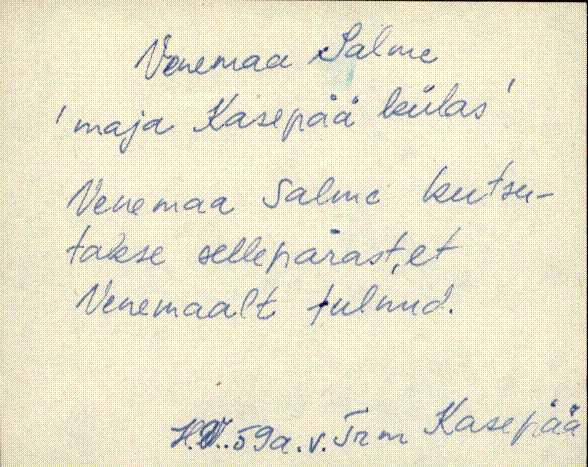 Venemaa Salme
'maja Kasepää külas'
Venemaa Salme kutsu-
takse sellepärast, et
Venemaalt tulnud.
59a. v. Trm Kasepää